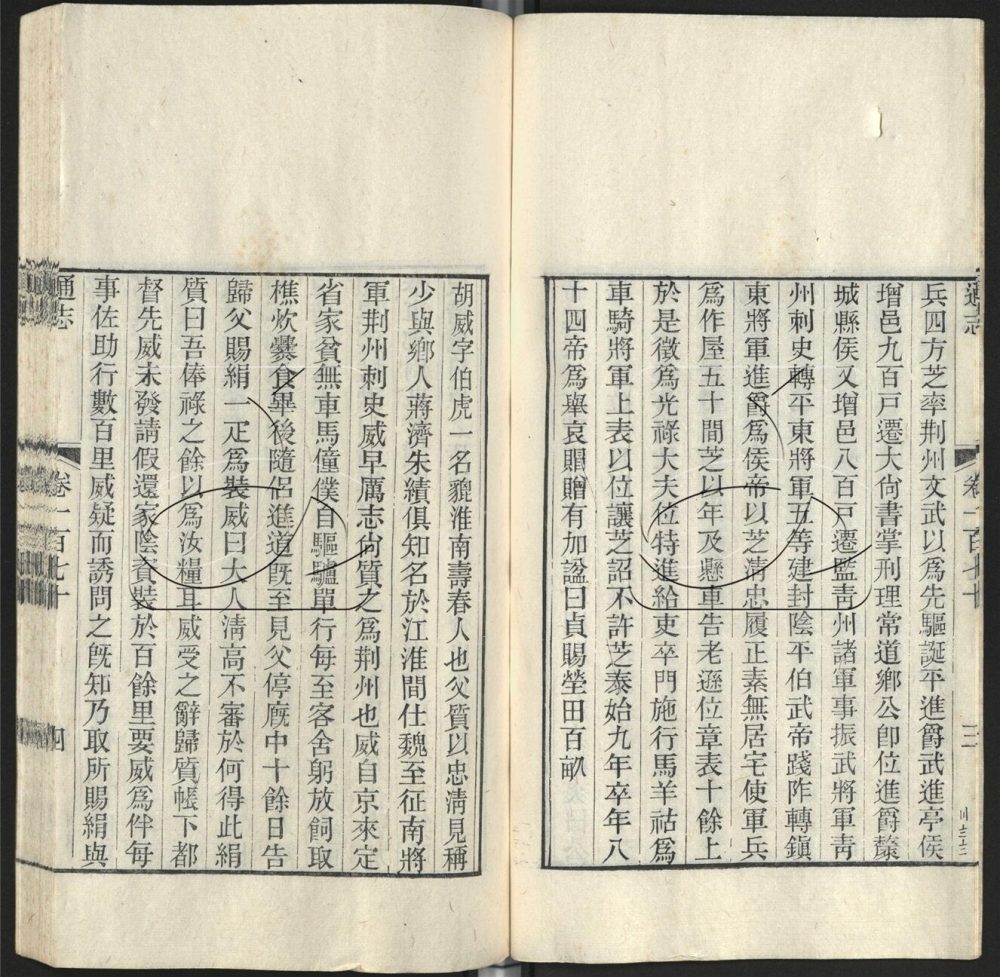 兵四方芝率荆州文武以爲先驅誕平進爵武進亭侯
增邑九百戸遷大尙書掌刑理常道鄉公卽位進爵斄
城縣侯又增邑八百戸遷監靑州諸軍事振武將軍靑
州刺史轉平東將軍五等建封陰平伯武帝踐阼轉鎭
東將軍進爵爲侯帝以芝淸忠履正素無居宅使軍兵
爲作屋五十間芝以年及懸車告老遜位章表十餘上
於是徵爲光祿大夫位特進給吏卒門施行馬羊祜爲
車騎將軍上表以位讓芝詔不許芝泰始九年卒年八
十四帝爲舉哀賵贈有加諡曰貞賜塋田百畝
胡威字伯虎一名貔淮南壽春人也父質以忠淸見稱
少與鄉人蔣濟朱績俱知名於江淮間仕魏至征南將
軍荆州刺史威早厲志尙質之爲荆州也威自京來定
省家貧無車馬僮僕自驅驢單行每至客舍躬放飼取
樵炊爨食畢後隨侶進道旣至見父停廐中十餘日告
歸父賜絹一疋爲裝威曰大人淸高不審於何得此絹
質曰吾俸祿之餘以爲汝糧耳威受之辭歸質帳下都
督先威未發請假還家陰賫裝於百餘里要威爲伴每
事佐助行數百里威疑而誘問之旣知乃取所賜絹與
通志
卷一百七十
四